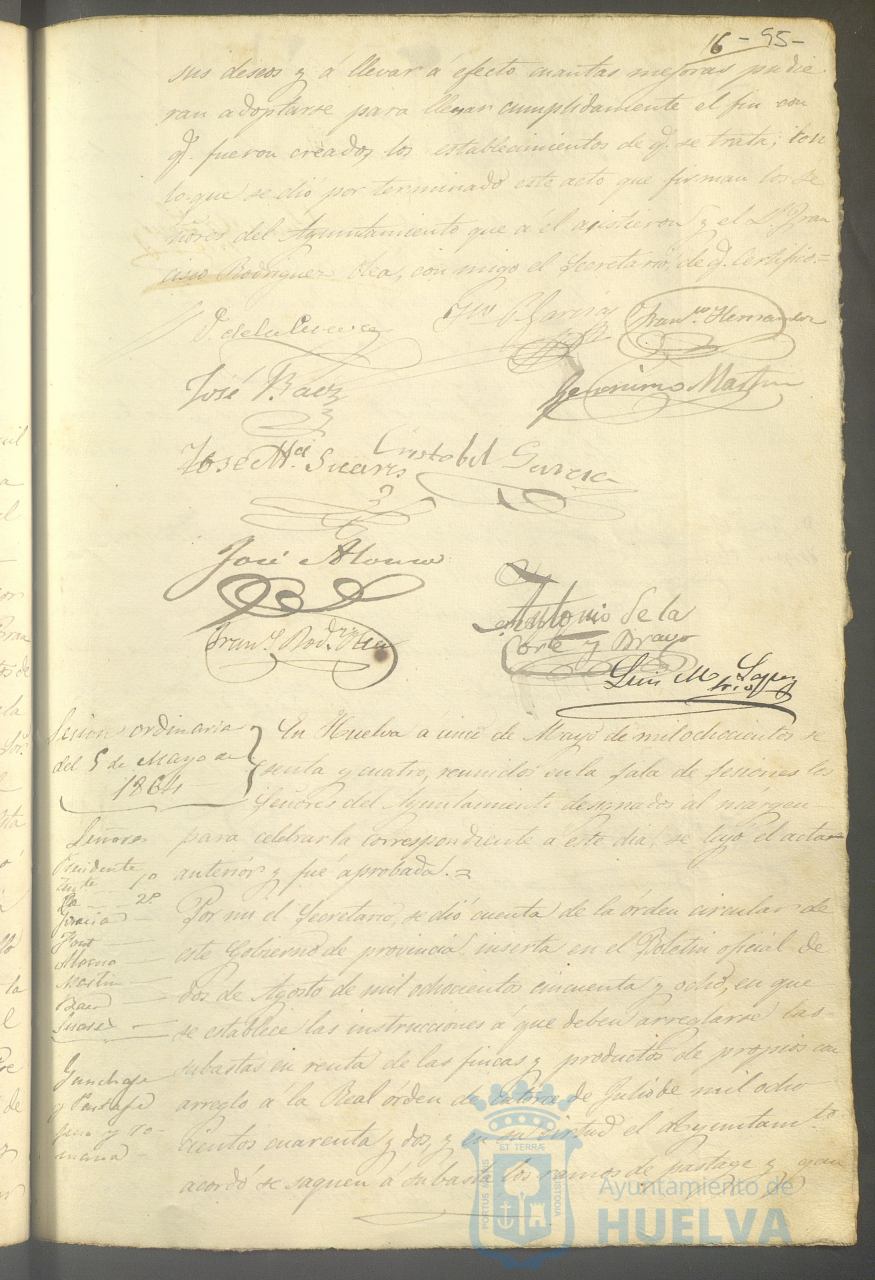 16 - 95 -
sus deseos y á llevar á efecto cuantas mejoras pudie
ran adoptarse para llenar cumplidamente el fin con
q.e fueron creados los establecimientos de q.e se trata; con
lo que se dió por terminado este acto que firman los Se
ñores del Ayuntamiento que á él asistieron y el D.n Fran
cisco Rodriguez Olea, con migo el Secretario, de q.e certifico.=
P. de la Cueva
Garcia
Fran.co Hernandez
José Baez
Geronimo Martin
José M.a Suarez
Cristobal Garcia
José Alonso
Antonio de la
Corte y Bravo
Fran.co Rod.z Olea
Luis M. Lopez
Srio
Sesion ordinaria
del 5 de Mayo de
1864
En Huelva a cinco de Mayo de mil ochocientos se
senta y cuatro, reunidos en la Sala de Sesiones los
Señores del Ayuntamiento designados al márgen
para celebrar la correspondiente á este dia, se leyó el acta
anterior y fué aprobada.=
Señores
Presidente
Tnte 1.o
2.o
Garcia
Moreno
Martin
Baez
Suarez
Por mi el Secretario, se dió cuenta de la órden circular de
este Gobierno de provincia inserta en el Boletin oficial de
dos de Agosto de mil ochocientos cincuenta y ocho, en que
se establece las instrucciones á que deben arreglarse las
subastas en renta de las fincas y productos de propios con
arreglo á la Real órden de catorce de Julio de mil ocho
cientos cuarenta y dos, y en su virtud el Ayuntam.to
acordó se saquen á subasta los ramos de pastage y
ET TERRÆ
PORTUS MARIS
CUSTODIA
Ayuntamiento de
HUELVA